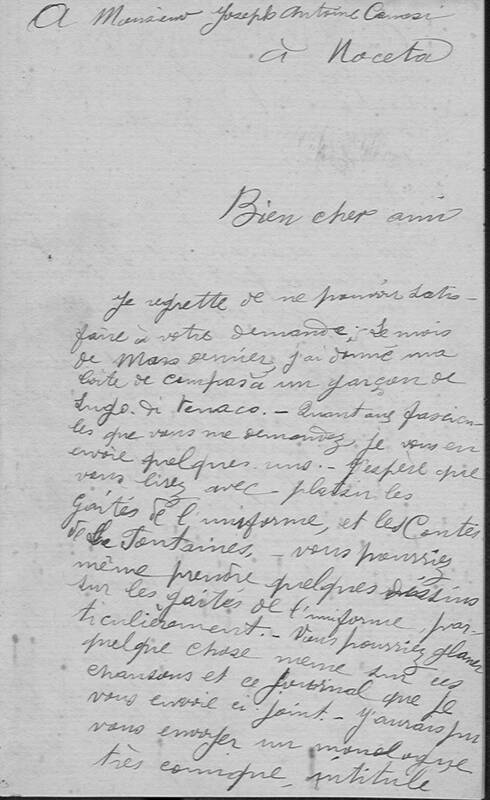 A Monsieur Joseph Antoine
à Noceta
Bien cher ami
Je regrette de ne pouvoir satis-
faire à votre demande; Le mois
de Mars dernier, j'ai donné ma
boite de compas à un garçon de
Lugo di Venaco. - Quant aux fascicu-
les que vous me demandez, je vous en
envoie quelques uns. - J'espère que
vous lirez avec plaisir les
gaités de l'uniforme, et les Contes
de La Fontaines, - vous pourriez
même prendre quelques dessins
sur les gaités de l'uniforme, par-
ticulièrement. - Vous pourriez glaner
quelque chose même sur ces
chansons et ce journal que je
vous envoie ci-joint. - J'aurais pu
vous envoyer un monologue
très comique, intitulé